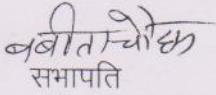 बबीता चौहान
सभापति